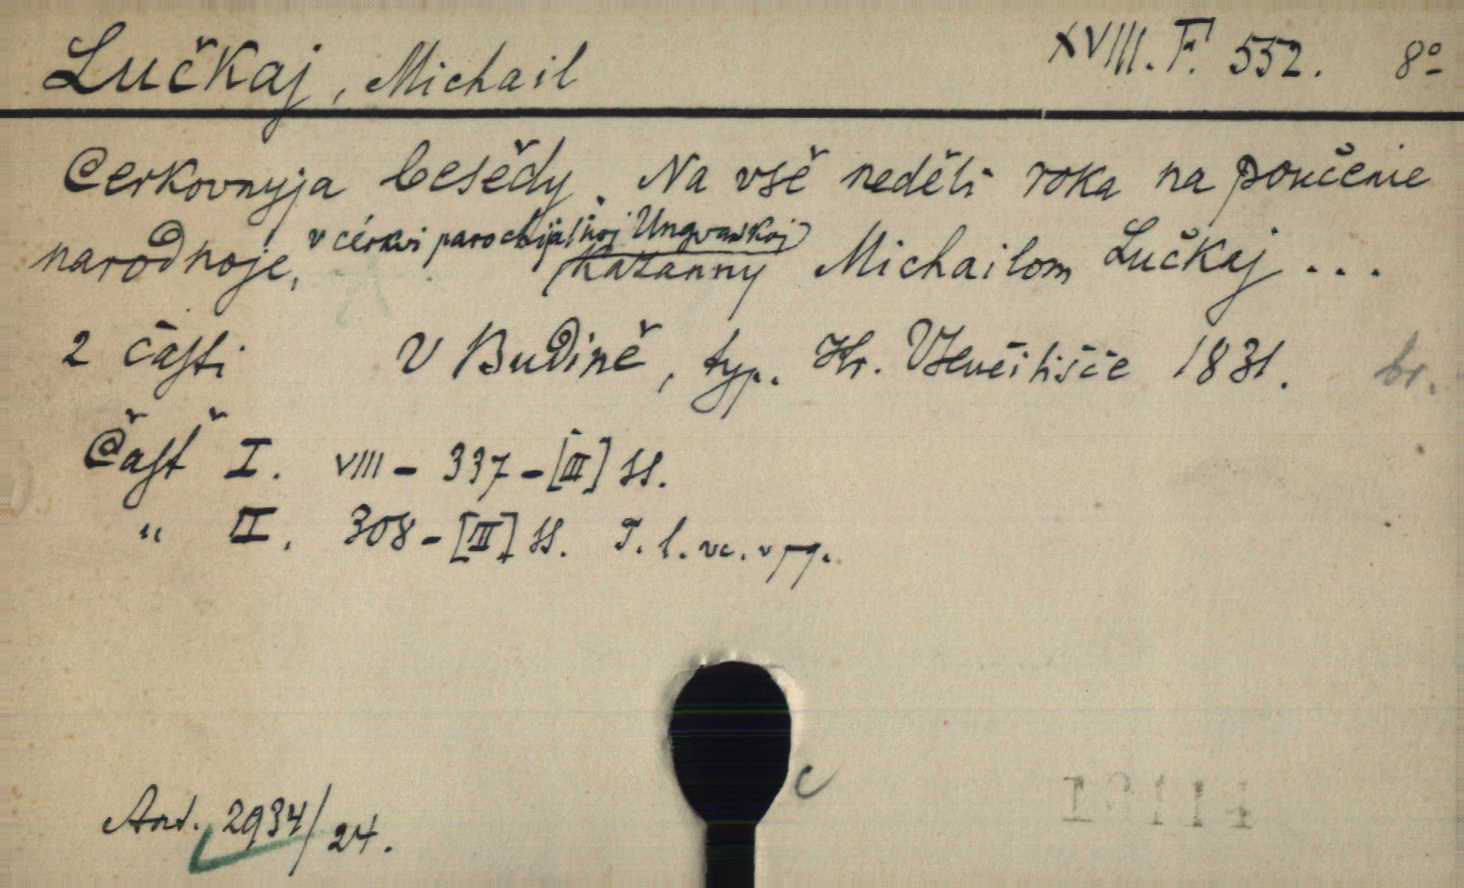 Lučkaj, Michail XVIII. F. 552. 8º
Cerkovnyja besědy. Na vsě neděli roka na poučenie
narodnoje, v cérkvi parochijalnoj Ungvarskoj kazanny Michailom Lučkaj ...
2 části V Budině, typ. Kr. Vseučilišče 1831. br.
Část I. VIII - 337 - [III] SS.
" II. 308 - [III] SS.
Ant. 2934/24.
C